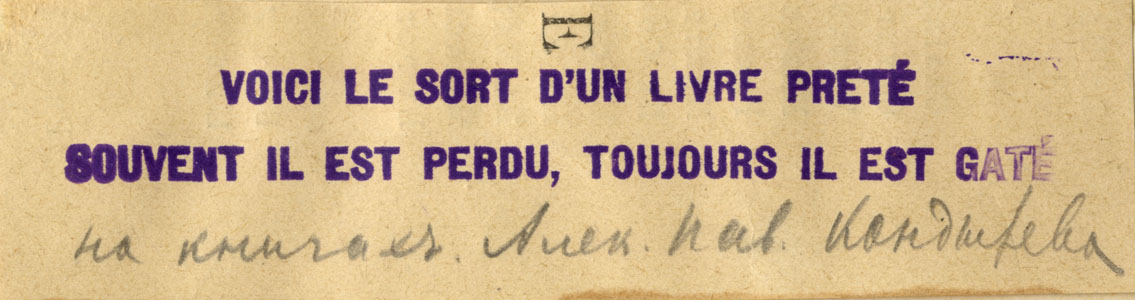 E
VOICI LE SORT D'UN LIVRE PRETÉ
SOUVENT IL EST PERDU, TOUJOURS IL EST GATÉ
на книгахъ. Алек. Пав. Кондырева